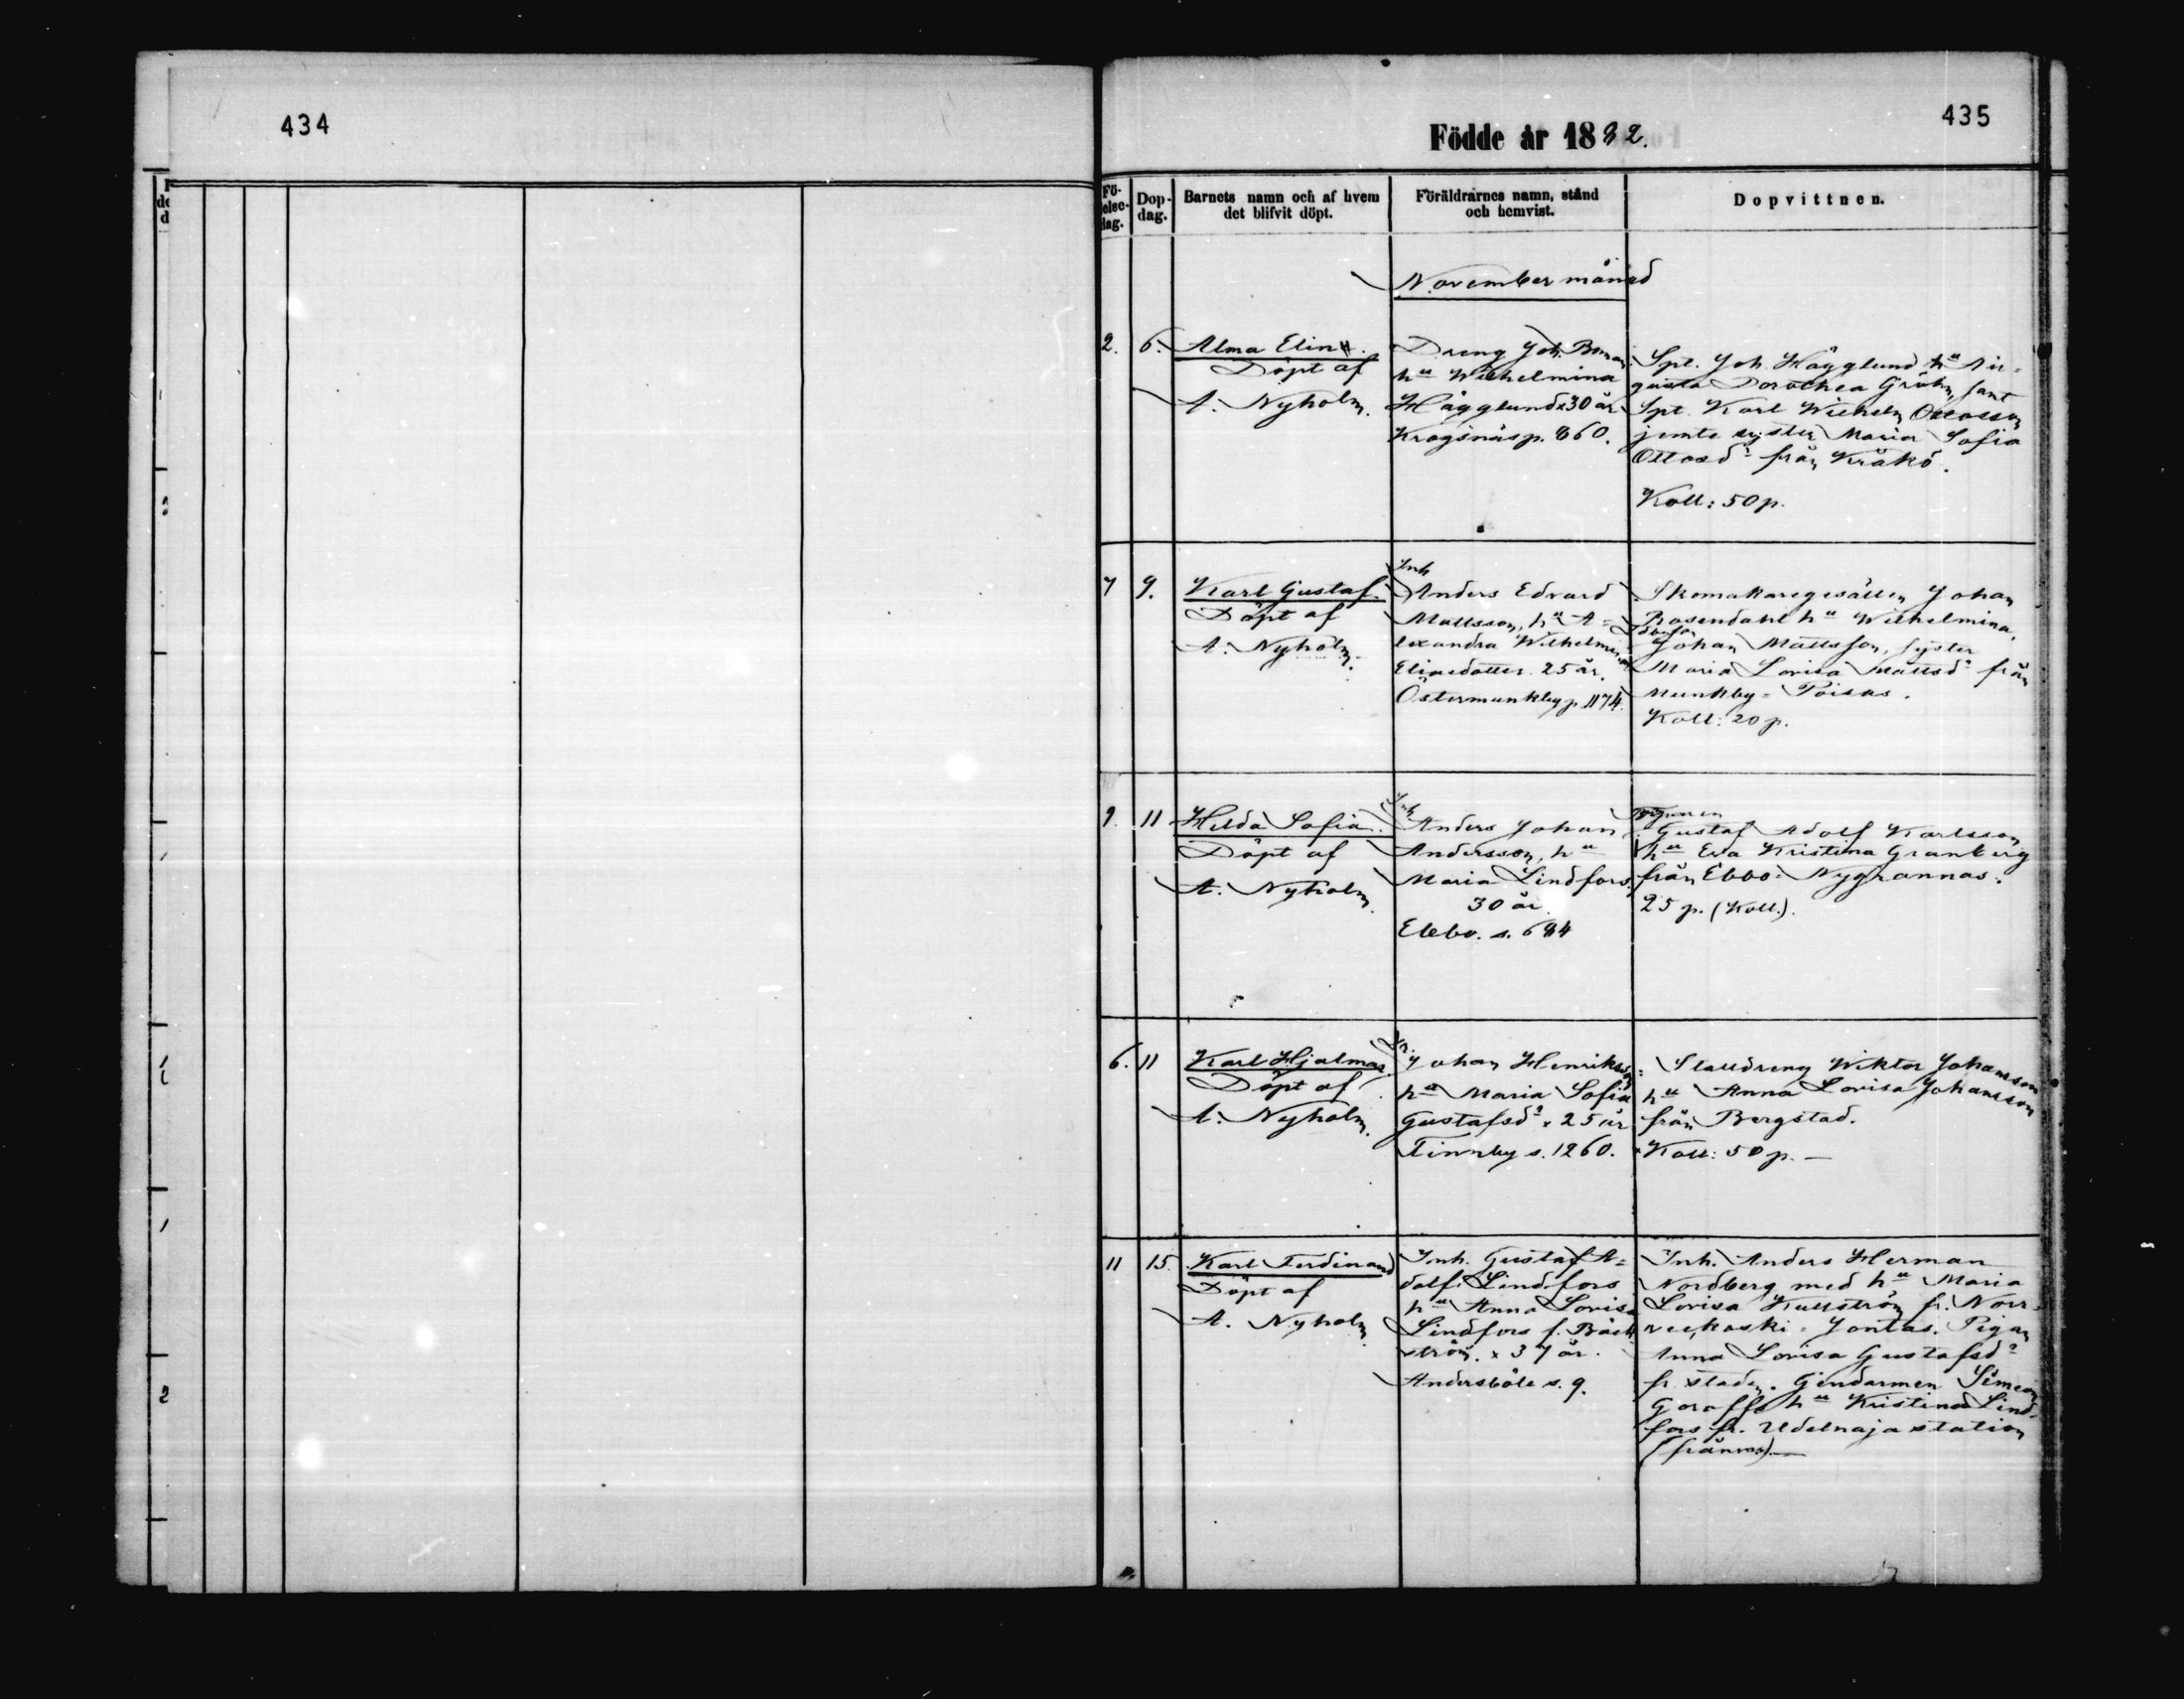 434
435
Födde år 1882.
Fö-
delse-
dag.
Dop-
dag.
Barnets namn och af hvem
det blifvit döpt.
Föräldrarnes namn, stånd
och hemvist.
Dopvittnen.
November månad
2. 6. Alma Elin
Döpt af
A. Nyholm.
Dreng Joh. Boman
hu Wilhelmina
Hägglund x 30 år
Kragsnäs p. 860.
Spt. Joh. Hägglund hu Au-
gusta Dorothea Gröhn, samt
Spt. Karl Wilhelm Ottosson
jemte syster Maria Sofia
Ottosd: från Kråkö.
Koll: 50 p.
7 9. Karl Gustaf.
Döpt af
A. Nyholm.
Inh
Anders Edvard
Mattsson, hu A-
lexandra Wilhelmina
Eliaedotter. 25 år.
Östermunkby p. 1174.
Skomakaregesällen Johan
Rosendahl hu Wilhelmina,
Johan Mattsson, syster
Maria Lovisa Mattsd: från
Munkby - Poisas.
Koll: 20 p.
9. 11 Hilda Sofia.
Döpt af
A. Nyholm.
Inh
Anders Johan
Andersson, hu
Maria Lindfors.
30 år.
Ebbo. s. 684
Gustaf Adolf Karlsson
hu Eva Kristina Granberg
från Ebbo - Nygrannas.
25 p. (Koll.).
6. 11 Karl Hjalmar
Döpt af
A. Nyholm.
Johan Henriksson
hu Maria Sofia
Gustafsd: x 25 år
Finnby s. 1260.
Stalldreng Wiktor Johansson
hu Anna Lovisa Johansson
från Borgstad.
Koll: 50 p. —
11 15. Karl Ferdinand
Döpt af
A. Nyholm
Inh. Gustaf A-
dolf Lindfors
hu Anna Lovisa
Lindfors f. Bäck-
ström. x 37 år.
Andersböle s. 9.
Inh. Anders Herman
Nordberg med hu Maria
Lovisa Kullström fr. Norr-
veckoski - Jontas. Pigan
Anna Lovisa Gustafsd:
fr. staden. Gendarmen Simeon
Goroff hu Kristina Lind-
fors fr. Udelnaja station
(frånvar.) —